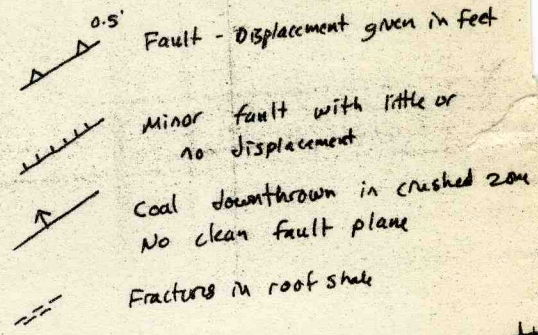 0.5'
Fault - Displacement given in feet
Minor fault with little or
no displacement
Coal downthrown in crushed zone
No clean fault plane
Fractures in roof shale